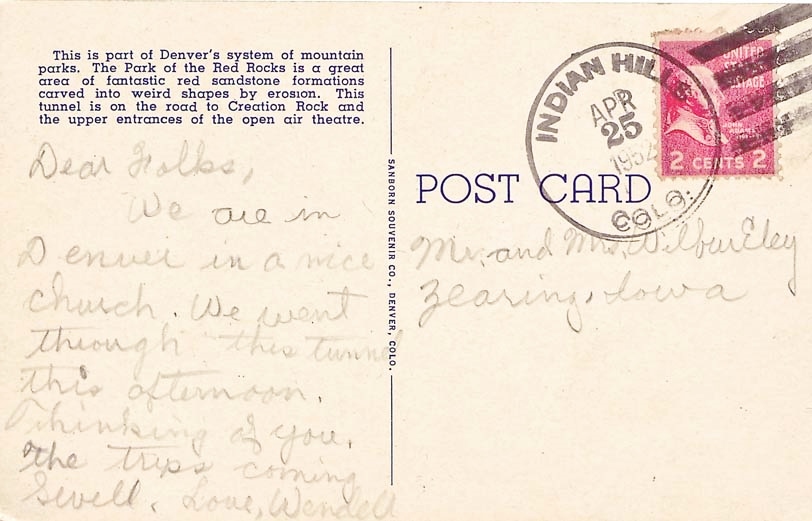 This is part of Denver's system of mountain
parks. The Park of the Red Rocks is a great
area of fantastic red sandstone formations
carved into weird shapes by erosion. This
tunnel is on the road to Creation Rock and
the upper entrances of the open air theatre.
Dear Folks,
We are in
Denver in a nice
church. We went
through this tunnel
this afternoon.
Thinking of you.
the trips coming
Swell. Love, Wendell
SANBORN SOUVENIR CO., DENVER, COLO.
INDIAN HILLS
APR
25
1952
COLO.
UNITED
STATES
POSTAGE
JOHN
ADAMS
2 CENTS 2
POST CARD
Mr. and Mrs. Wilbur Eley
Zearing, Iowa